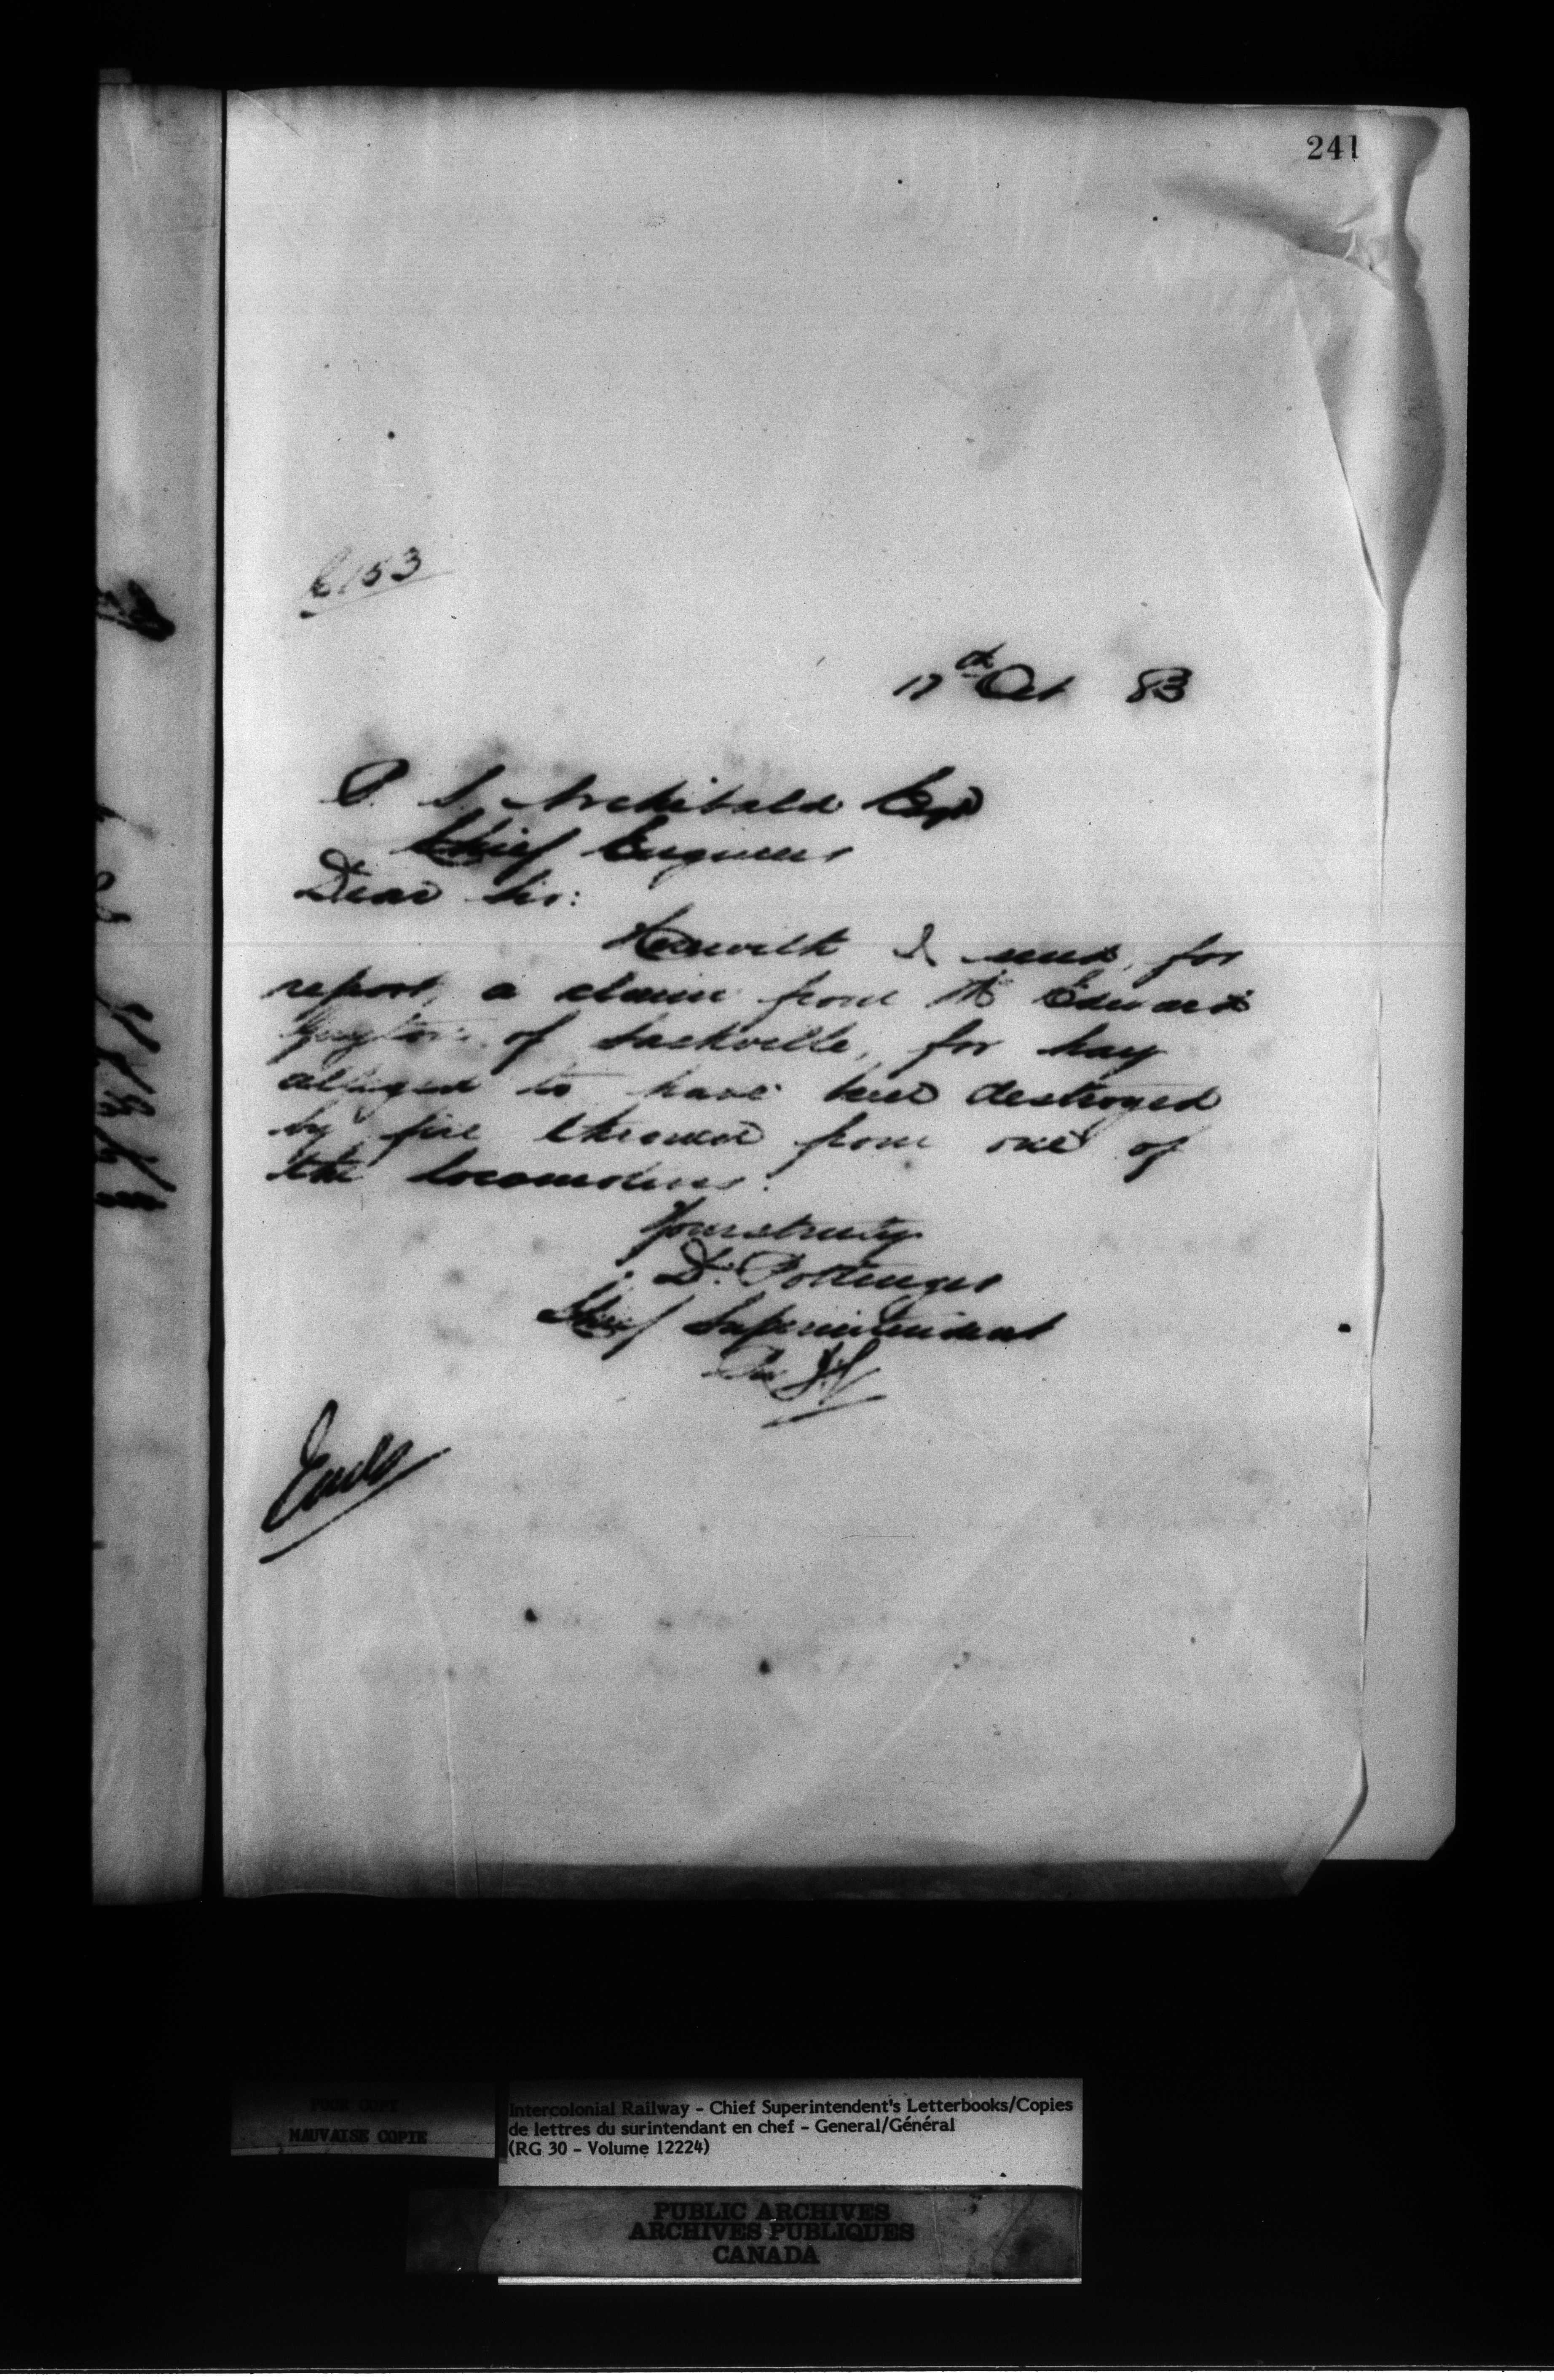 241
6153
17th Oct 83
P. S. Archibald Esq
Chief Engineer
Dear Sir:
Herewith I send, for
report, a claim from Mr Edward
of Sackville, for hay
alleged to have been destroyed
by fire thrown from one of
the locomotives.
Yours truly
D. Pottinger
Chief Superintendent
Per
Encls
POOR COPY
MAUVAISE COPIE
Intercolonial Railway - Chief Superintendent's Letterbooks/Copies
de lettres du surintendant en chef - General/Général
(RG 30 - Volume 12224)
PUBLIC ARCHIVES
ARCHIVES PUBLIQUES
CANADA